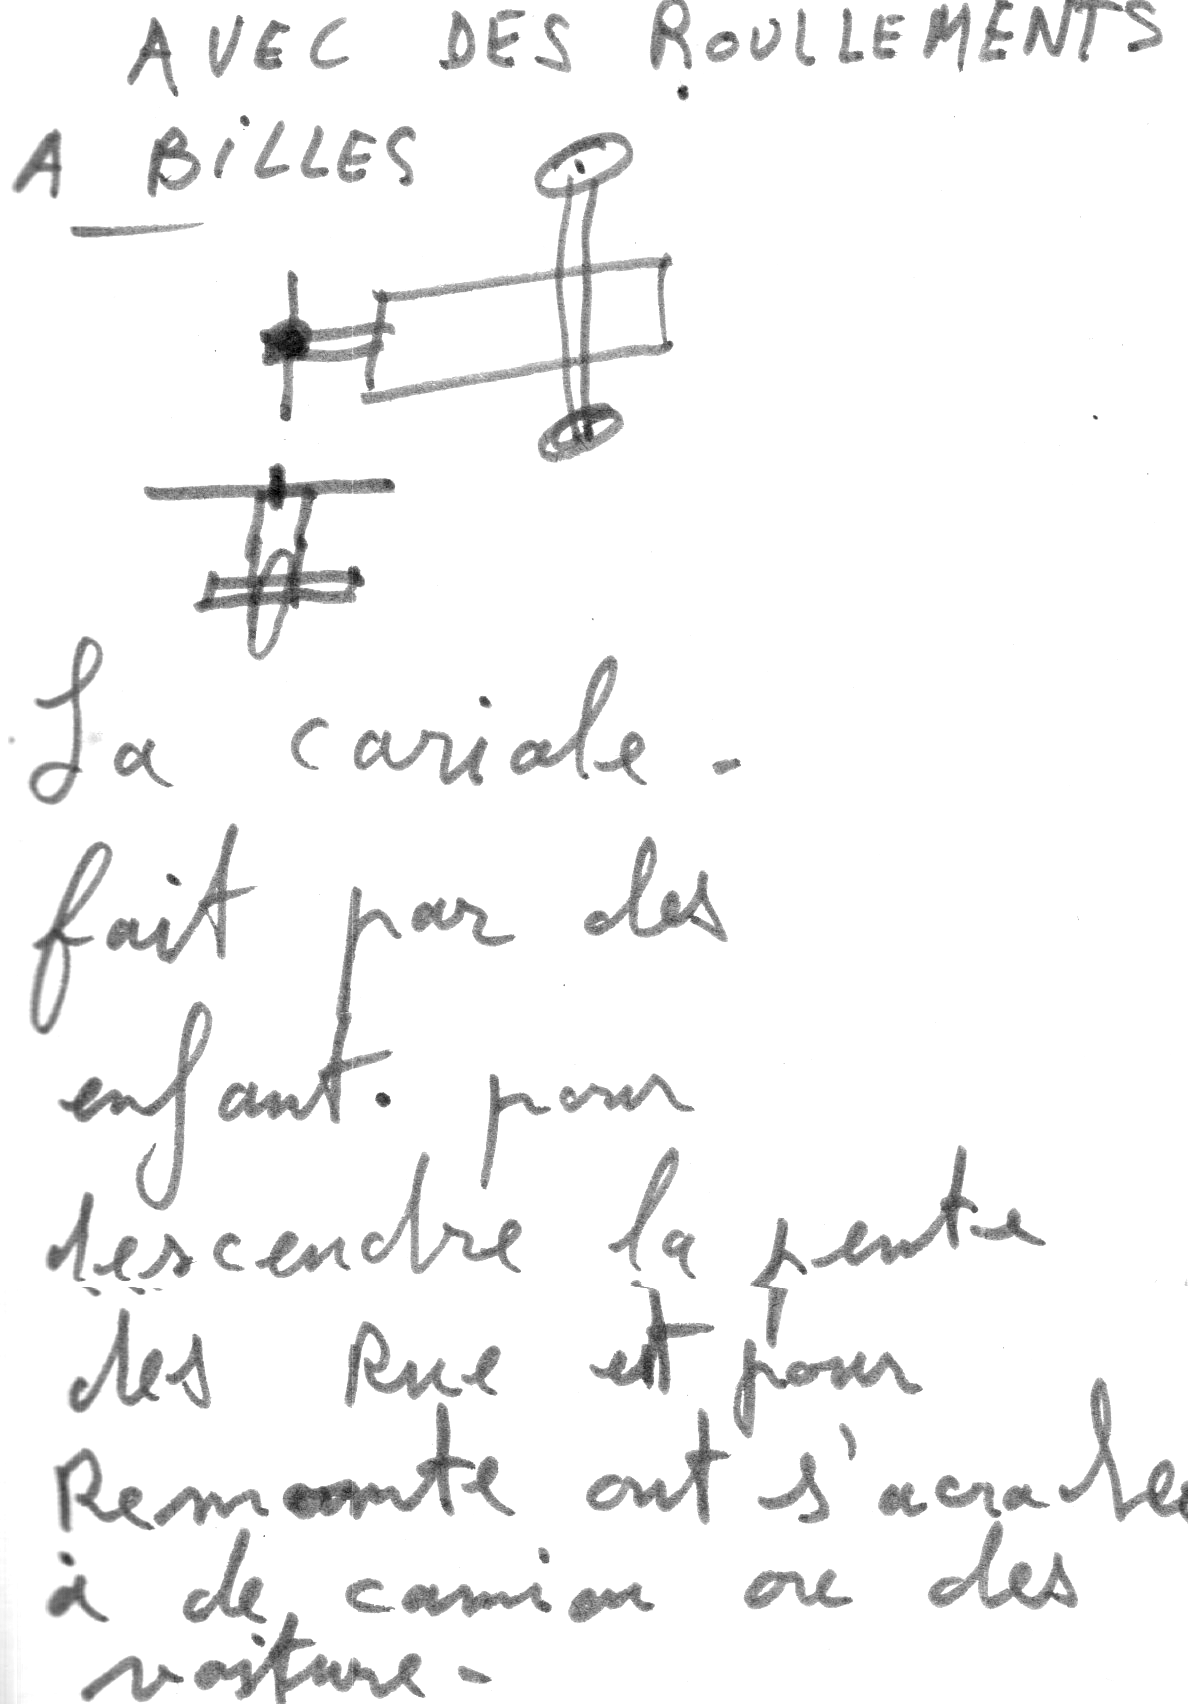 AVEC DES ROULLEMENTS
A BiLLES
La cariole.
fait par des
enfant. pour
descendre la pente
des Rue et pour
Remonte ont s'acroche
à de camion ou des
voiture.